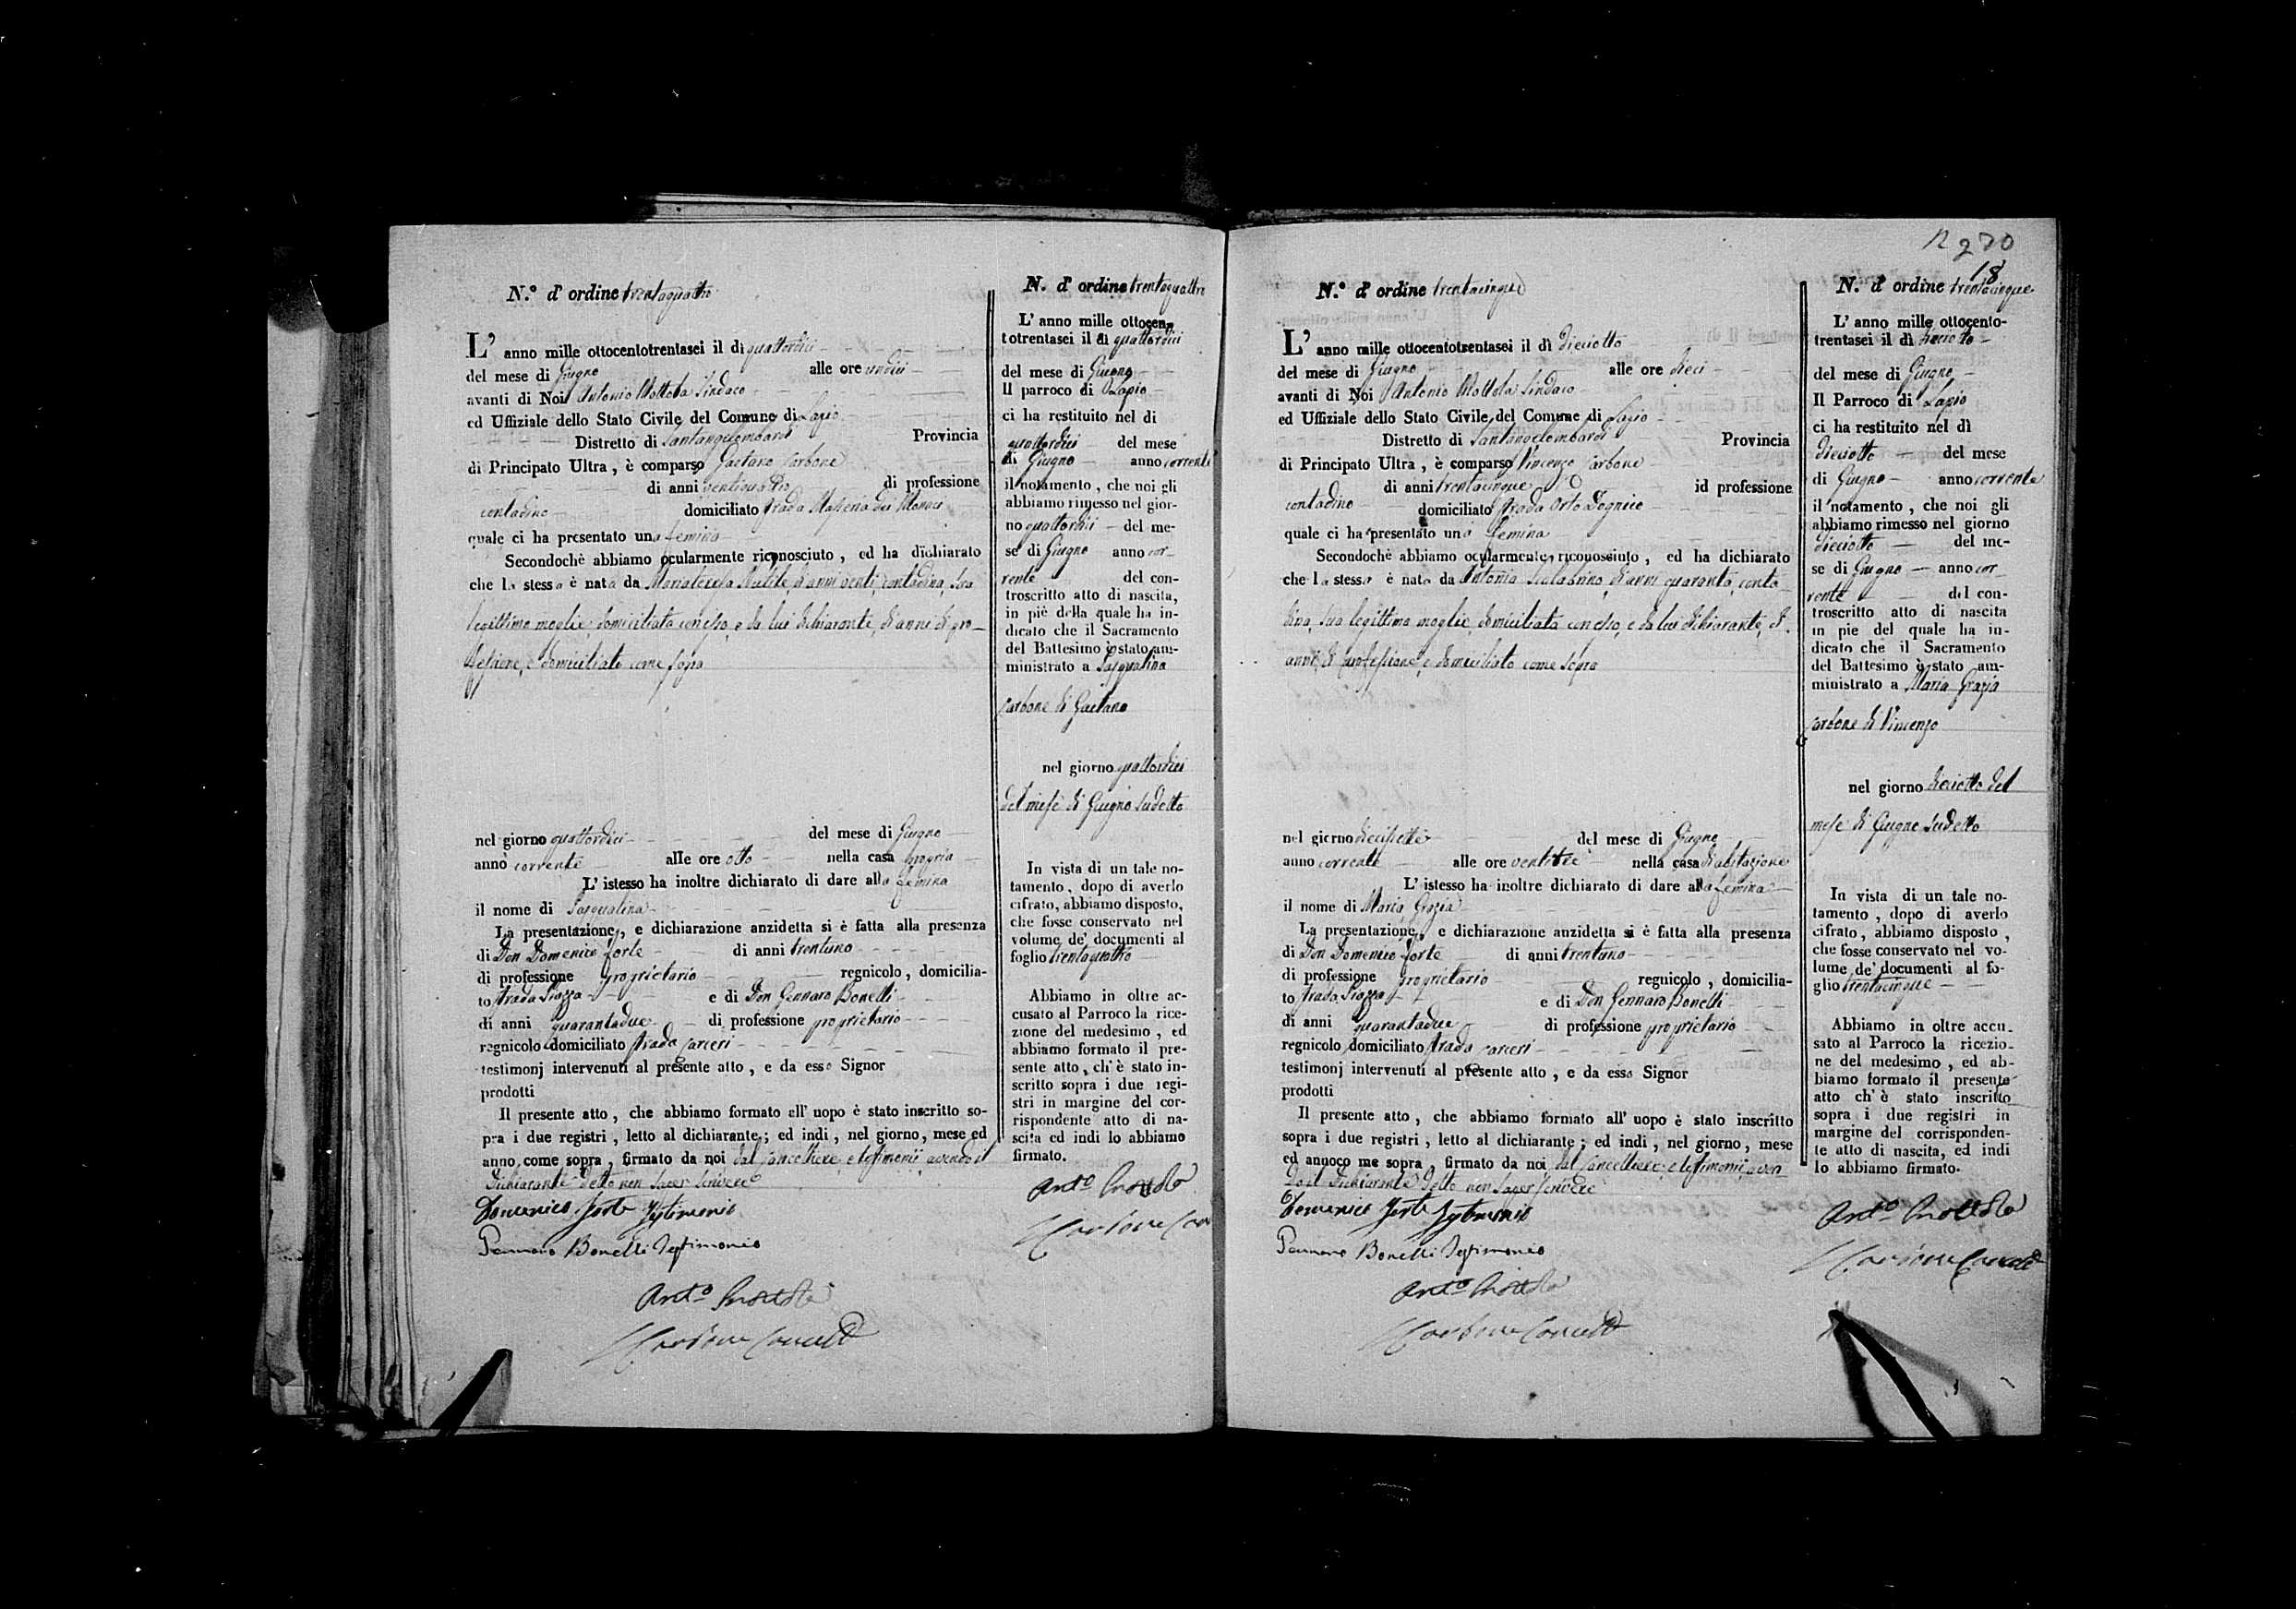 N.º d' ordine trentaquattro
L' anno mille ottocentotrentasei il dì quattordici
del mese di Giugno alle ore undici
avanti di Noi Antonio Mottola Sindaco
ed Uffiziale dello Stato Civile del Comune di Lapio
Distretto di Santangelombardi Provincia
di Principato Ultra, è comparso Gaetano Carbone
di anni ventiquattro di professione
contadino domiciliato strada Masseria dei Monaci
quale ci ha presentato una femina
Secondochè abbiamo ocularmente riconosciuto, ed ha dichiarato
che la stessa è nata da Mariateresa di anni venti, contadina, sua
legittima moglie, domiciliata con esso, e da lui dichiarante, di anni di pro-
fessione, e domiciliato come sopra
nel giorno quattordici del mese di Giugno
anno corrente alle ore otto nella casa propria
L' istesso ha inoltre dichiarato di dare alla femina
il nome di Pasqualina
La presentazione, e dichiarazione anzidetta si è fatta alla presenza
di Don Domenico Forte di anni trentuno
di professione proprietario regnicolo, domicilia-
to strada Piazza e di Don Gennaro Bonelli
di anni quarantadue di professione proprietario
regnicolo domiciliato strada Carceri
testimonj intervenuti al presente atto, e da esso Signor
prodotti
Il presente atto, che abbiamo formato all' uopo è stato inscritto so-
pra i due registri, letto al dichiarante; ed indi, nel giorno, mese ed
anno come sopra, firmato da noi dal Cancelliere, e testimonii, avendo il
Dichiarante detto non saper scrivere
Domenico Forte Testimonio
Gennaro Bonelli Testimonio
Ant.º Mottola
Carbone Cancell
N. d' ordine trentaquattro
L' anno mille ottocen-
totrentasei il di quattordici
del mese di Giugno
Il parroco di Lapio
ci ha restituito nel di
quattordici del mese
di Giugno anno corrente
il notamento, che noi gli
abbiamo rimesso nel gior-
no quattordici del me-
se di Giugno anno cor-
rente del con-
troscritto atto di nascita,
in piè della quale ha in-
dicato che il Sacramento
del Battesimo è stato am-
ministrato a Pasqualina
Carbone di Gaetano
nel giorno quattordici
del mese di Giugno sudetto
In vista di un tale no-
tamento, dopo di averlo
cifrato, abbiamo disposto,
che fosse conservato nel
volume de' documenti al
foglio trentaquattro
Abbiamo in oltre ac-
cusato al Parroco la rice-
zione del medesimo, ed
abbiamo formato il pre-
sente atto, ch' è stato in-
scritto sopra i due regi-
stri in margine del cor-
rispondente atto di na-
scita ed indi lo abbiamo
firmato.
Ant.º Mottola
Carbone Can
12 270
18
N.º d' ordine trentacinque
L' anno mille ottocentotrentasei il dì dieciotto
del mese di Giugno alle ore dieci
avanti di Noi Antonio Mottola Sindaco
ed Uffiziale dello Stato Civile del Comune di Lapio
Distretto di Santangelombardi Provincia
di Principato Ultra, è comparso Vincenzo Carbone
di anni trentacinque id professione
contadino domiciliato strada Orto Dognico
quale ci ha presentato una femina
Secondochè abbiamo ocularmente riconosciuto, ed ha dichiarato
che la stessa è nata da Antonia Scalabrino, di anni quaranta, conta-
dina, sua legittima moglie, domiciliata con esso, e da lui dichiarante, di
anni, di professione, e domiciliato come sopra
nel giorno diecisette del mese di Giugno
anno corrente alle ore ventitre nella casa di abitazione
L' istesso ha inoltre dichiarato di dare alla femina
il nome di Maria Grazia
La presentazione, e dichiarazione anzidetta si è fatta alla presenza
di Don Domenico Forte di anni trentuno
di professione proprietario regnicolo, domicilia-
to strada Piazza e di Don Gennaro Bonelli
di anni quarantadue di professione proprietario
regnicolo domiciliato strada Carceri
testimonj intervenuti al presente atto, e da esso Signor
prodotti
Il presente atto, che abbiamo formato all' uopo è stato inscritto
sopra i due registri, letto al dichiarante; ed indi, nel giorno, mese
ed annoco me sopra, firmato da noi dal Cancelliere, e testimonii, aven-
do il Dichiarante detto non saper scrivere
Domenico Forte Testimonio
Gennaro Bonelli Testimonio
Ant.º Mottola
Carbone Cancell
N. d' ordine trentacinque
L' anno mille ottocento-
trentasei il dì dieciotto
del mese di Giugno
Il Parroco di Lapio
ci ha restituito nel dì
dieciotto del mese
di Giugno anno corrente
il notamento, che noi gli
abbiamo rimesso nel giorno
dieciotto del me-
se di Giugno anno cor-
rente del con-
troscritto atto di nascita
in pie del quale ha in-
dicato che il Sacramento
del Battesimo è stato am-
ministrato a Maria Grazia
Carbone di Vincenzo
nel giorno dieciotto del
mese di Giugno sudetto
In vista di un tale no-
tamento, dopo di averlo
cifrato, abbiamo disposto,
che fosse conservato nel vo-
lume de' documenti al fo-
glio trentacinque
Abbiamo in oltre accu-
sato al Parroco la ricezio-
ne del medesimo, ed ab-
biamo formato il presente
atto ch' è stato inscritto
sopra i due registri in
margine del corrisponden-
te atto di nascita, ed indi
lo abbiamo firmato.
Ant.º Mottola
Carbone Cancell